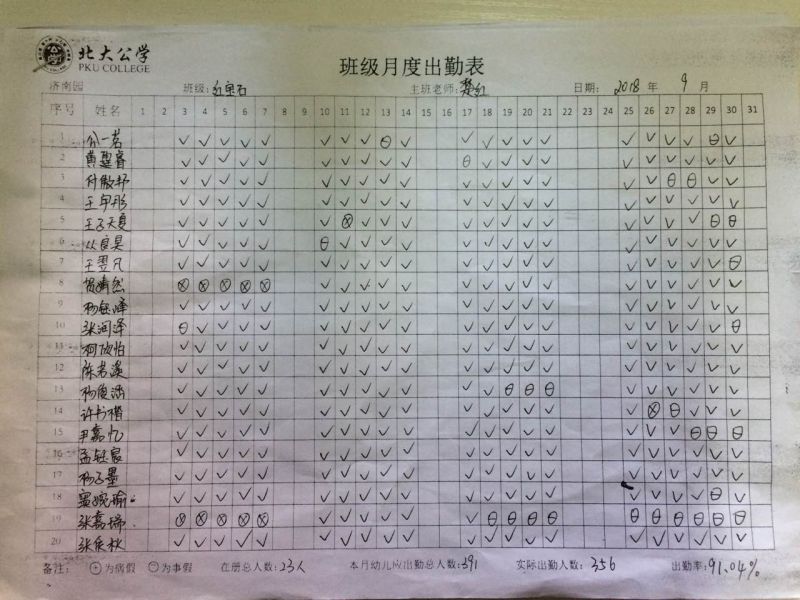 北大公学
PKU COLLEGE
班级月度出勤表
济南园 班级:红宝石 主班老师: 日期: 2018 年 9 月
序号 姓名 1 2 3 4 5 6 7 8 9 10 11 12 13 14 15 16 17 18 19 20 21 22 23 24 25 26 27 28 29 30 31
1 一茗 ✓ ✓ ✓ ✓ ✓ ✓ ✓ ✓ ⊖ ✓ ✓ ✓ ✓ ✓ ✓ ✓ ✓ ✓ ✓ ⊖ ✓
2 黄 睿 ✓ ✓ ✓ ✓ ✓ ✓ ✓ ✓ ✓ ✓ ⊖ ✓ ✓ ✓ ✓ ✓ ✓ ✓ ✓ ✓ ✓
3 付傲 ✓ ✓ ✓ ✓ ✓ ✓ ✓ ✓ ✓ ✓ ✓ ✓ ✓ ✓ ✓ ✓ ✓ ⊖ ⊖ ✓ ✓
4 王 彤 ✓ ✓ ✓ ✓ ✓ ✓ ✓ ✓ ✓ ✓ ✓ ✓ ✓ ✓ ✓ ✓ ✓ ✓ ✓ ✓ ✓
5 王子天夏 ✓ ✓ ✓ ✓ ✓ ✓ ⊗ ✓ ✓ ✓ ✓ ✓ ✓ ✓ ✓ ✓ ✓ ✓ ✓ ⊖ ⊖
6 从良昊 ✓ ✓ ✓ ✓ ✓ ⊖ ✓ ✓ ✓ ✓ ✓ ✓ ✓ ✓ ✓ ✓ ✓ ✓ ✓ ✓ ✓
7 王翌凡 ✓ ✓ ✓ ✓ ✓ ✓ ✓ ✓ ✓ ✓ ✓ ✓ ✓ ✓ ✓ ✓ ✓ ✓ ✓ ✓ ⊖
8 婧然 ⊗ ⊗ ⊗ ⊗ ⊗ ✓ ✓ ✓ ✓ ✓ ✓ ✓ ✓ ✓ ✓ ✓ ✓ ✓ ✓ ✓ ✓
9 杨钰泽 ✓ ✓ ✓ ✓ ✓ ✓ ✓ ✓ ✓ ✓ ✓ ✓ ✓ ✓ ✓ ✓ ✓ ✓ ✓ ✓ ✓
10 张润泽 ⊖ ✓ ✓ ✓ ✓ ✓ ✓ ✓ ✓ ✓ ✓ ✓ ✓ ✓ ✓ ✓ ✓ ✓ ✓ ✓ ⊖
11 柯欣怡 ✓ ✓ ✓ ✓ ✓ ✓ ✓ ✓ ✓ ✓ ✓ ✓ ✓ ✓ ✓ ✓ ✓ ✓ ✓ ✓ ✓
12 陈若溪 ✓ ✓ ✓ ✓ ✓ ✓ ✓ ✓ ✓ ✓ ✓ ✓ ✓ ✓ ✓ ✓ ✓ ✓ ✓ ✓ ✓
13 杨俊涵 ✓ ✓ ✓ ✓ ✓ ✓ ✓ ✓ ✓ ✓ ✓ ✓ ⊖ ⊖ ⊖ ✓ ✓ ✓ ✓ ✓ ✓
14 许书楷 ✓ ✓ ✓ ✓ ✓ ✓ ✓ ✓ ✓ ✓ ✓ ✓ ✓ ✓ ✓ ✓ ⊗ ⊖ ✓ ✓ ✓
15 尹嘉忆 ✓ ✓ ✓ ✓ ✓ ✓ ✓ ✓ ✓ ✓ ✓ ✓ ✓ ✓ ✓ ✓ ✓ ✓ ⊖ ⊖ ⊖
16 孟钰宸 ✓ ✓ ✓ ✓ ✓ ✓ ✓ ✓ ✓ ✓ ✓ ✓ ✓ ✓ ✓ ✓ ✓ ✓ ✓ ✓ ✓
17 杨子墨 ✓ ✓ ✓ ✓ ✓ ✓ ✓ ✓ ✓ ✓ ✓ ✓ ✓ ✓ ✓ ✓ ✓ ✓ ✓ ✓ ✓
18 婉瑜 ✓ ✓ ✓ ✓ ✓ ✓ ✓ ✓ ✓ ✓ ✓ ✓ ✓ ✓ ✓ ✓ ✓ ✓ ✓ ⊖ ✓
19 张嘉瑞 ⊗ ⊗ ⊗ ⊗ ⊗ ✓ ✓ ✓ ✓ ✓ ✓ ⊖ ⊖ ⊖ ⊖ ⊖ ⊖ ⊖ ⊖ ⊖ ⊖
20 张 秋 ✓ ✓ ✓ ✓ ✓ ✓ ✓ ✓ ✓ ✓ ✓ ✓ ✓ ✓ ✓ ✓ ✓ ✓ ✓ ✓ ✓
备注: ⊕为病假 ⊖为事假 在册总人数:23人 本月幼儿应出勤总人数:391 实际出勤人数:356 出勤率:91.04%